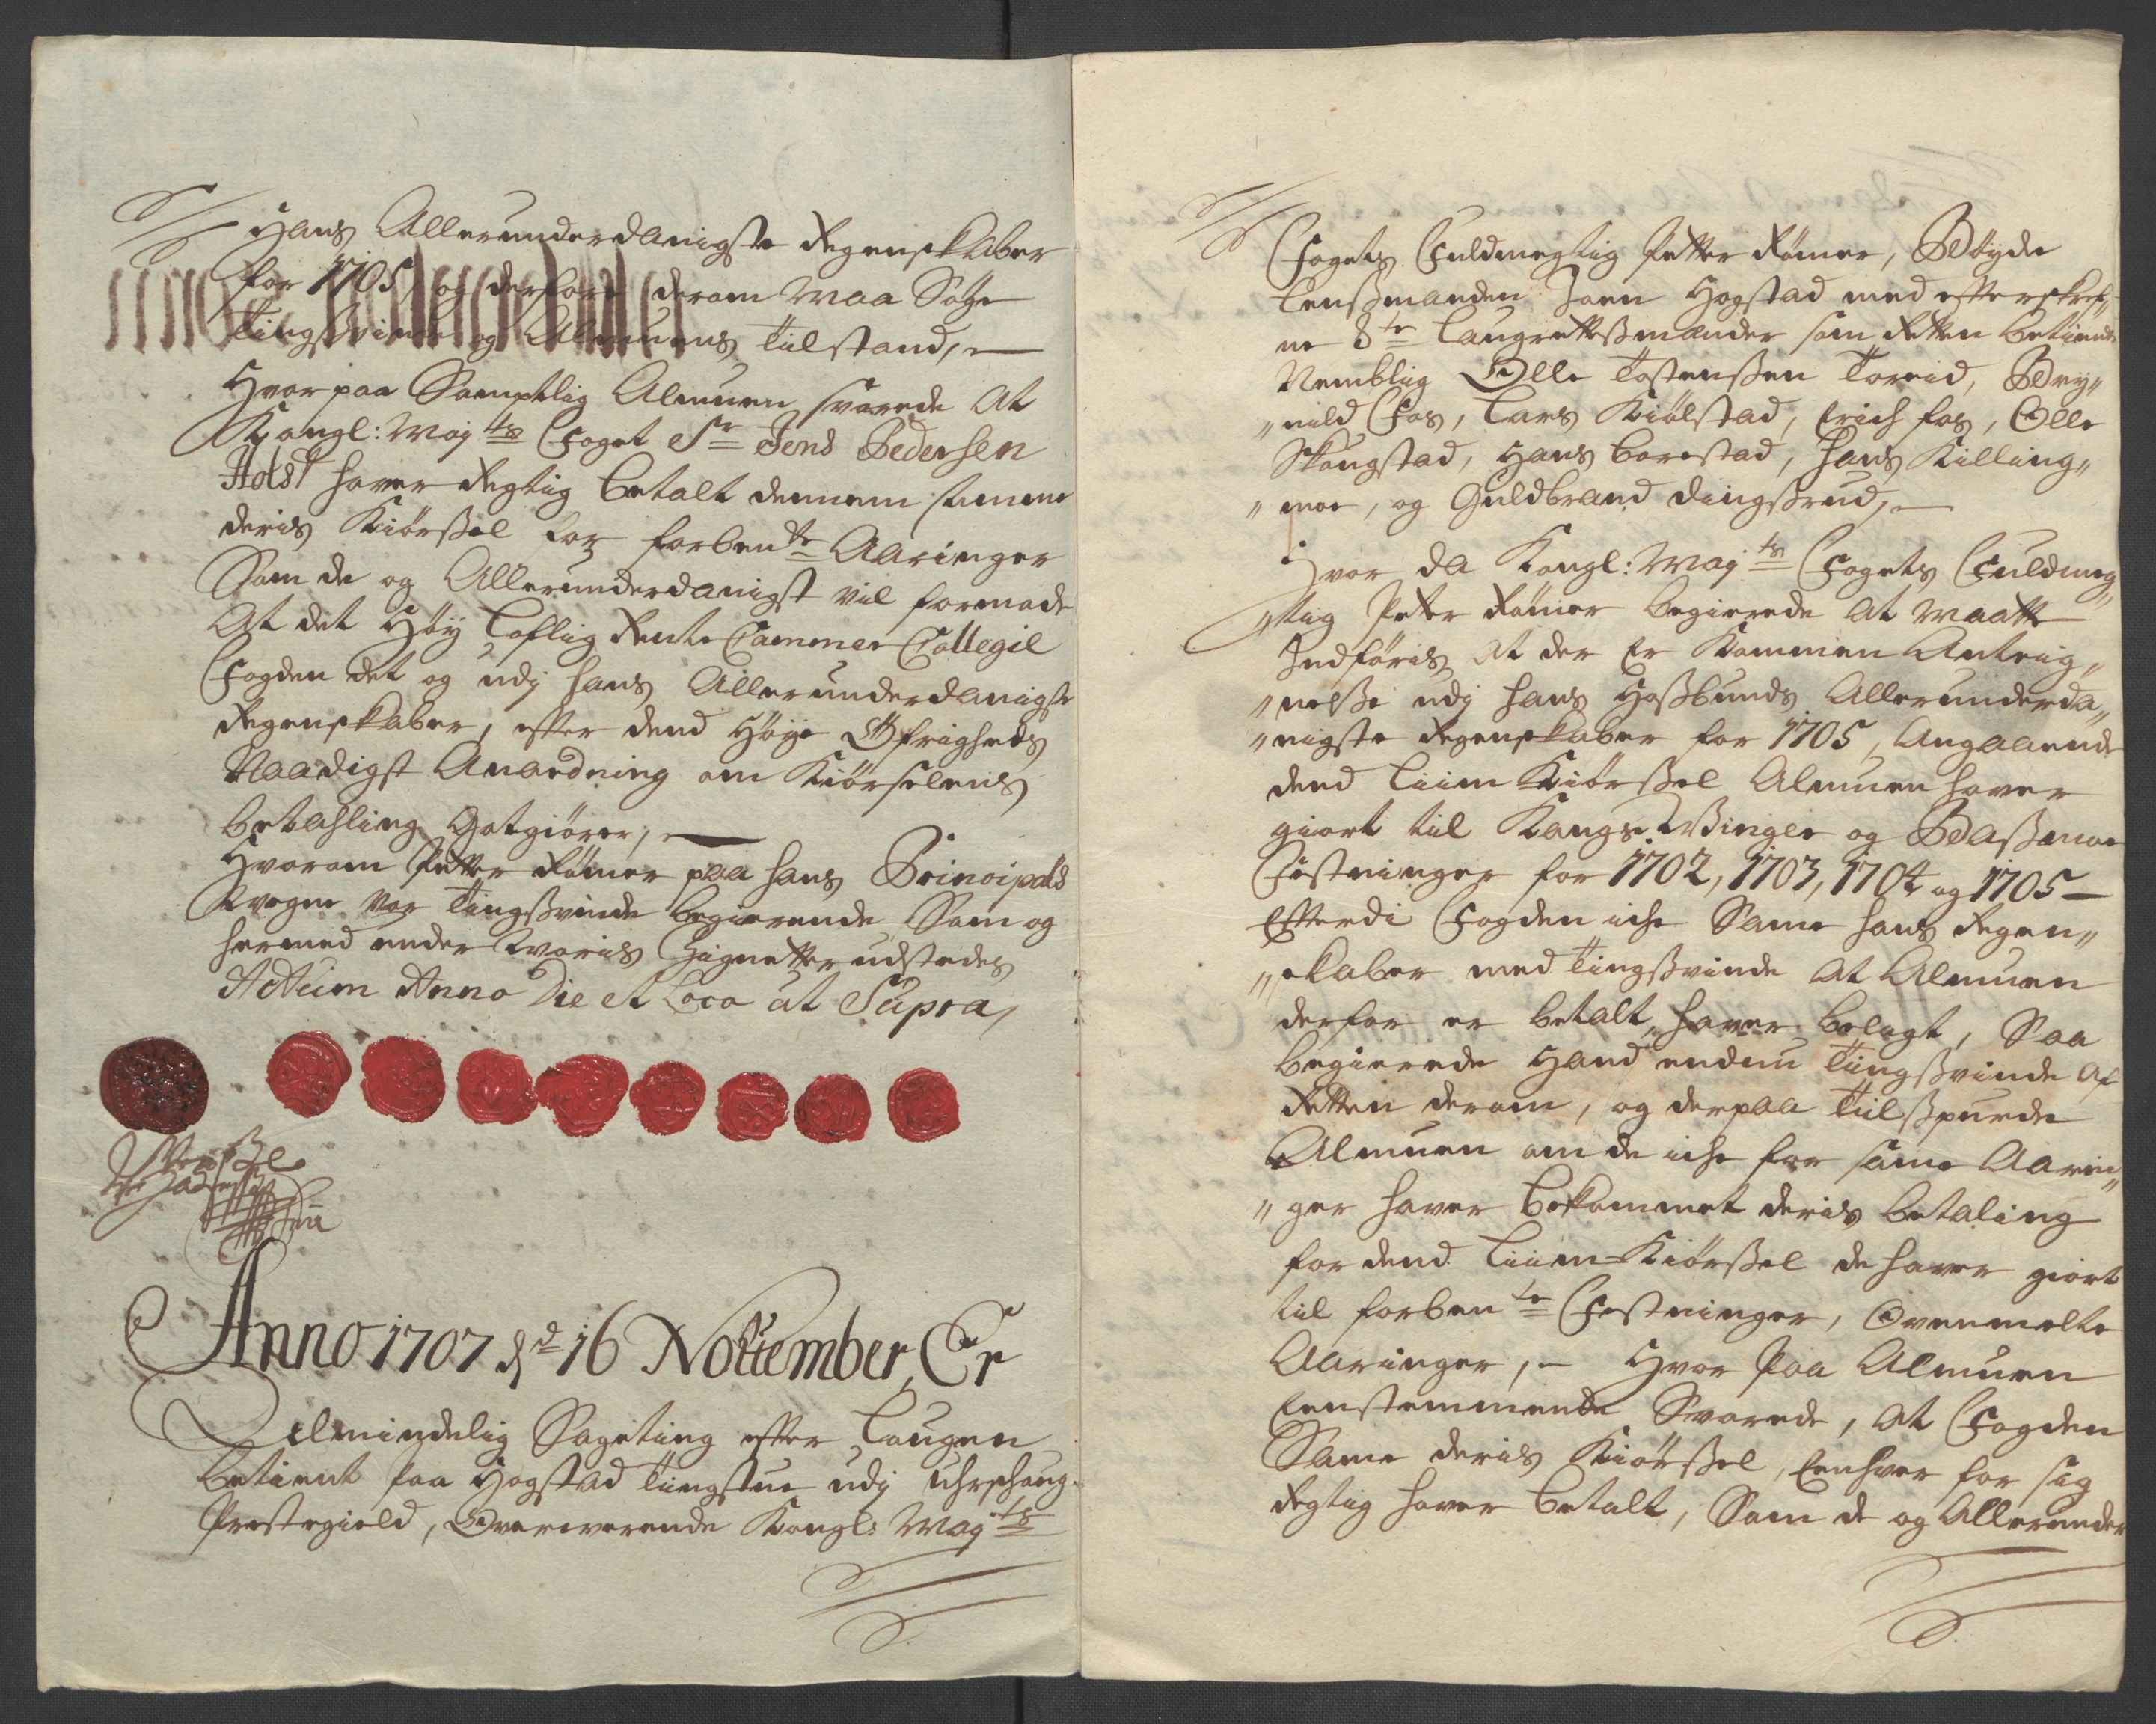 Hans Allerunderdanigste Regenskaber
for 1705, og derfore derom maa Søge
Tingsvinde og Almuens Tilstand, -
Hvorpaa Samptlig Almuen svarede At
Kongl: May ts Foget Sr Jens Pedersen
Holst haver Rigtig betalt dennem samme
deris Kiørssel for forbente Aaringer
Som de og Allerunderdanigst vil formode
At det Høy Loflig Rente Cammer Collegie
Fogden det og udj hans Allerunderdanigste
Regenskaber, efter dend Høye Øfrigheds
Naadigst Anordning om Kiørselens
betahling Gotgiører, -
Hvorom Petter Rømer paa hans Principals
Vegne var Tingssvinde begierende Som og
hermed under voris Zignetter udstedes
Actum Anno Die et Loco ut Supra,
Anno 1707 d 16 November, Er
Almindelig Sageting efter Laugen
betient paa Hogstad Tingstue udj Uhrschoug
Prestegield, Overwerende Kongl: May ts
Fogets Fuldmegtig Petter Rømer, Bøyde
Lenssmanden Joen Hogstad med efterskref,,
ne 8te Laugrettessmender som Retten betiente
Nemblig Olle Tostenssen Toreid, Bry,,
,,nild Fos, Lars Kiølstad, Erich fos, Olle
Skougstad, Hans borestad, Hans Killing,,
,, moe, og Guldbrand Dingssrud, -
Hvor da Kongl: May ts Fogets Fuldmeg,,
,,tig Peter Rømer begierede at maatte
Indføris, At der Er Kommen Anteig,,
,,nelsse udj hans Hossbunds Allerunderda,,
,,nigste Regenskaber for 1705, Angaaende
dend Liim Kiørssel Almuen haver
giort til Kongs Winger og Bassmoe
Festninger for 1702, 1703, 1704 og 1705 -
Efterdi Fogden iche Samme hans Regen,,
,,skaber med Tingssvinde At Almuen
derfor er betalt, haver belagt, Saa
begierede Hand endnu Tingssvinde Af
Retten derom, og derpaa Tilsspurde
Almuen om de iche for samme Aarin,,
,, ger haver bekommet deris betaling
for dend Liim-Kiørssel de haver giort
til forbente Festninger, Ovenmelte
Aaringer, - Hvor paa Almuen
Eenstemmende Svarede, At Fogden
Samme deris Kiørssel, Eenhver for sig
Rigtig haver betalt, Som de og Allerunder